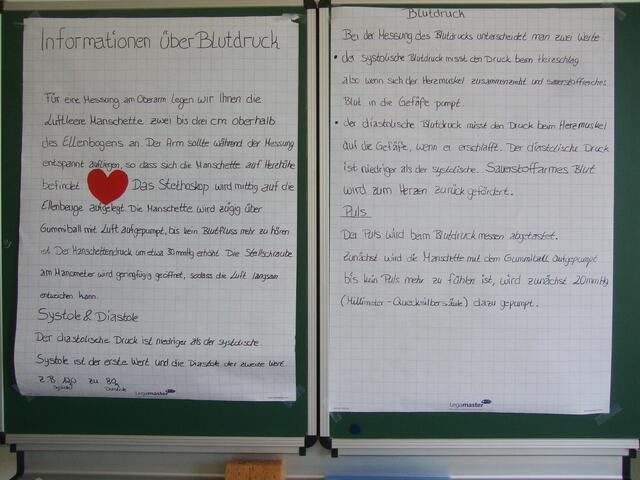 Informationen über Blutdruck
Für eine Messung am Oberarm legen wir Ihnen die
luftleere Manschette zwei bis drei cm oberhalb
des Ellenbogens an. Der Arm sollte während der Messung
entspannt aufliegen, so dass sich die Manschette auf Herzhöhe
befindet Das Stethoskop wird mittig auf die
Ellenbeuge aufgelegt. Die Manschette wird zügig über
Gummiball mit Luft aufgepumpt, bis kein Blutfluss mehr zu hören
ist. Der Manschettendruck um etwa 30 mmHg erhöht. Die Stellschraube
am Manometer wird geringfügig geöffnet, sodass die Luft langsam
entweichen kann.
Systole & Diastole
Der diastolische Druck ist niedriger als der systolische.
Systole ist der erste Wert und die Diastole der zweite Wert.
z.B. 120 zu 80
Systole Diastole
Legamaster
Blutdruck
Bei der Messung des Blutdrucks unterscheidet man zwei Werte
• der systolische Blutdruck misst den Druck beim Herzschlag
also wenn sich der Herzmuskel zusammenzieht und sauerstoffreiches
Blut in die Gefäße pumpt.
• der diastolische Blutdruck misst den Druck beim Herzmuskel
auf die Gefäße, wenn er erschlafft. Der diastolische Druck
ist niedriger als der systolische. Sauerstoffarmes Blut
wird zum Herzen zurück gefördert.
Puls
Der Puls wird beim Blutdruckmessen abgetastet.
Zunächst wird die Manschette mit dem Gummiball aufgepumpt
bis kein Puls mehr zu fühlen ist, wird zunächst 20 mmHg
(Millimeter-Quecksilbersäule) dazu gepumpt.
Legamaster